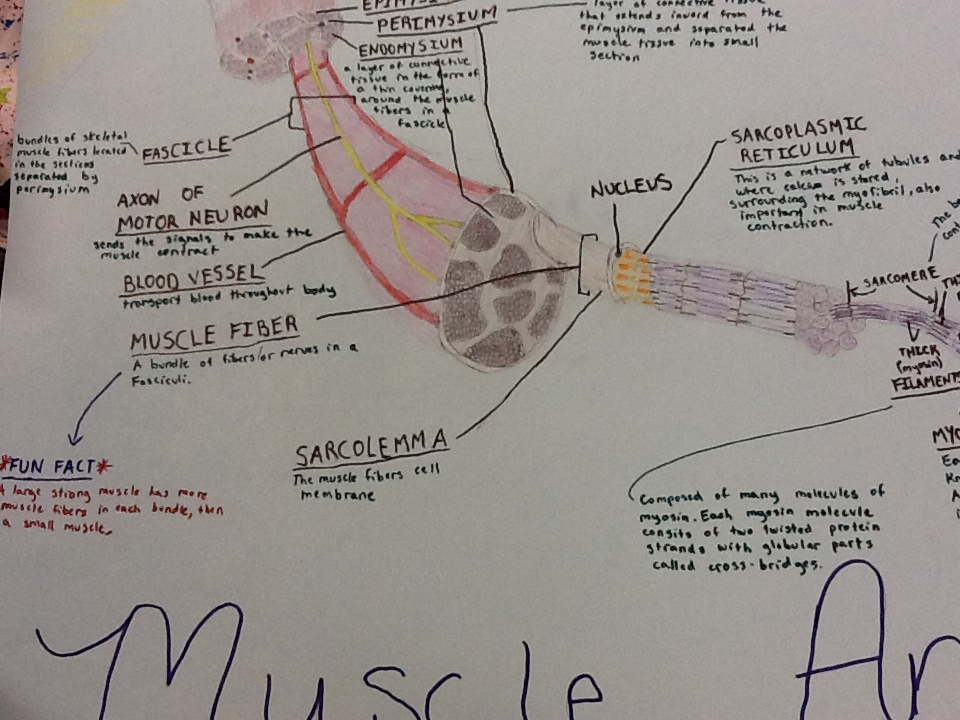 PERIMYSIUM
layer of connective tissue
that extends inward from the
epimysium and separated the
muscle tissue into small
section
ENDOMYSIUM
a layer of connective
tissue in the form of
a thin covering,
around the muscle
fibers in a
fascicle
bundles of skeletal
muscle fibers located
in the sections
separated by
perimysium
FASCICLE
AXON OF
MOTOR NEURON
sends the signals to make the
muscle contract
BLOOD VESSEL
transport blood throughout body
MUSCLE FIBER
A bundle of fibers/or nerves in a
Fasciculi.
*FUN FACT*
A large strong muscle has more
muscle fibers in each bundle, then
a small muscle.
SARCOLEMMA
The muscle fibers cell
membrane
NUCLEUS
SARCOPLASMIC
RETICULUM
This is a network of tubules and
where calcium is stored,
surrounding the myofibril, also
important in muscle
contraction.
The
SARCOMERE
THICK
(myosin)
FILAMENTS
Composed of many molecules of
myosin. Each myosin molecule
consits of two twisted protein
strands with globular parts
called cross-bridges.
Muscle An